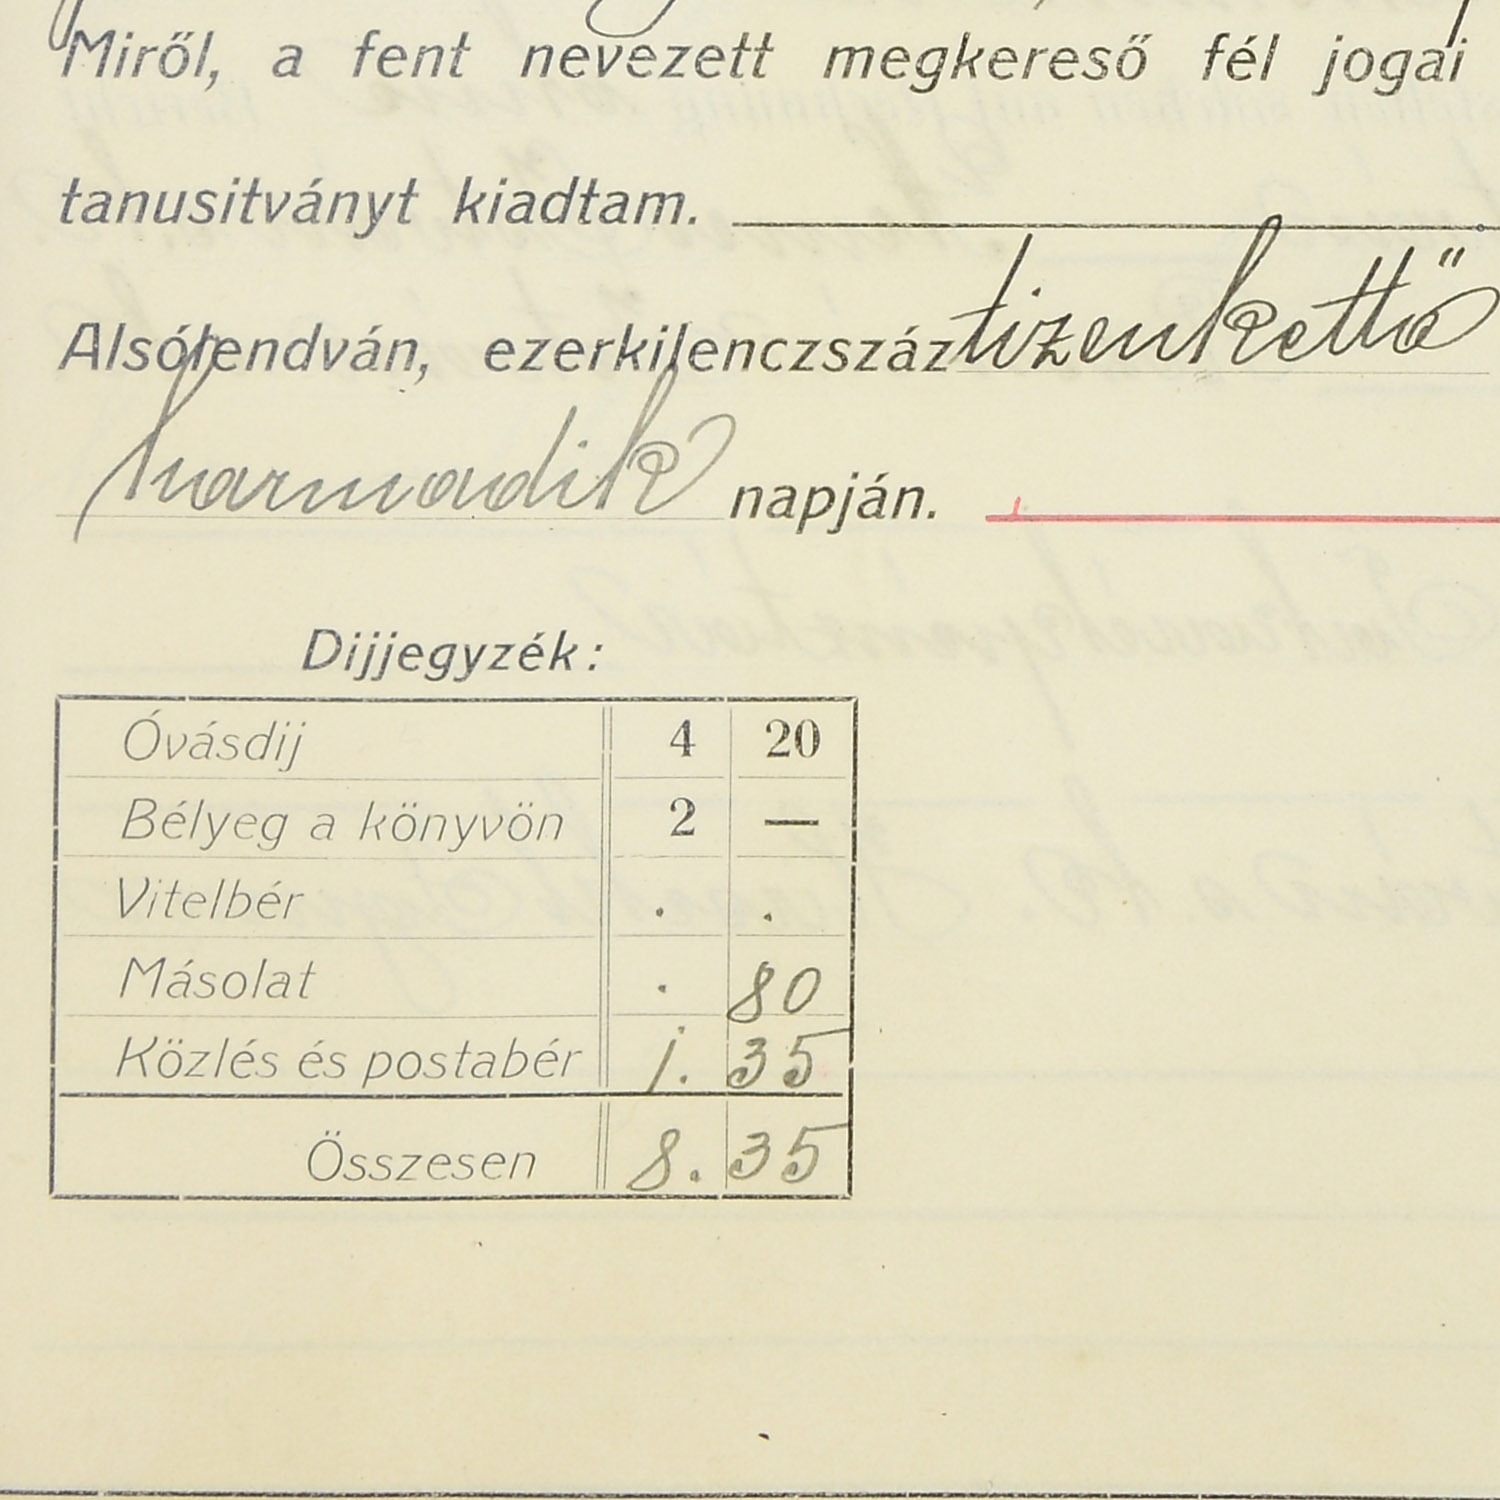 Miről, a fent nevezett megkereső fél jogai
tanusitványt kiadtam.
Alsólendván, ezerkilenczszáztizenkettő
harmadik napján.
Dijjegyzék:
Óvásdij 4 20
Bélyeg a könyvön 2 —
Vitelbér . .
Másolat . 80
Közlés és postabér 1. 35
Összesen 8. 35